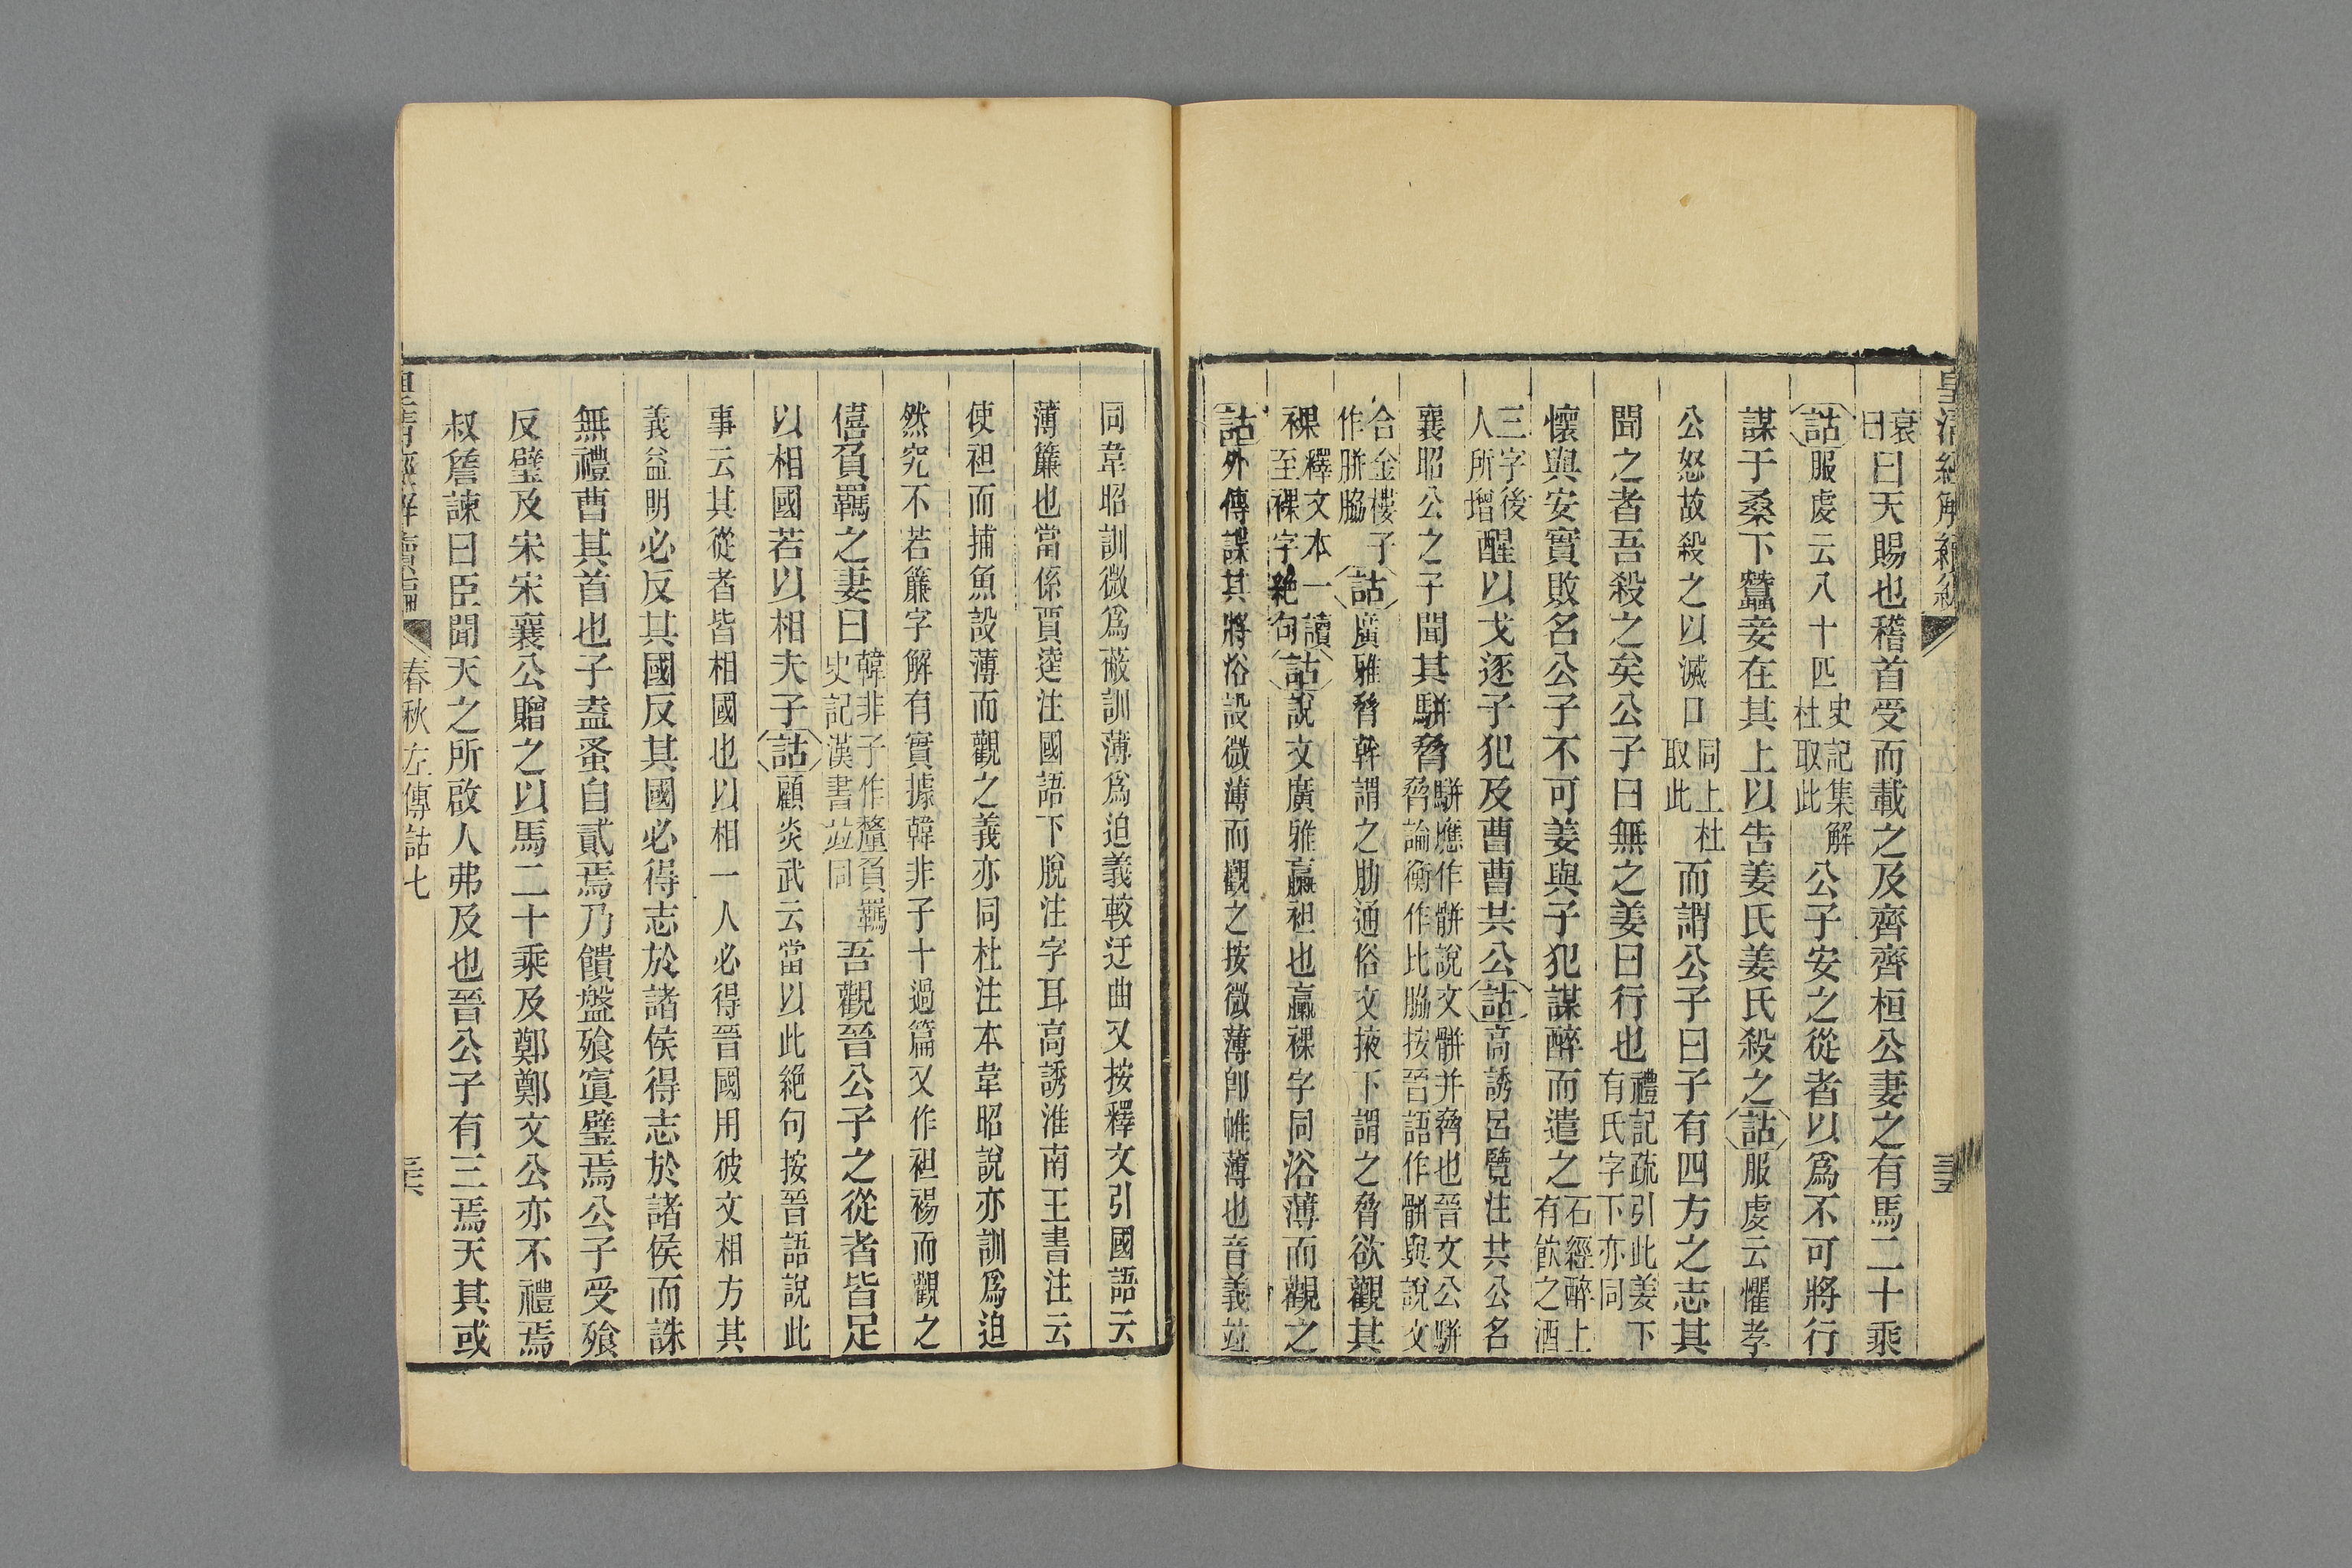 皇清經解續編
三五
衰曰曰天賜也稽首受而載之及齊齊桓公妻之有馬二十乘
詁服虔云八十匹史記集解杜取此公子安之從者以爲不可將行
謀于桑下蠶妾在其上以告姜氏姜氏殺之詁服虔云懼孝
公怒故殺之以滅口同上杜取此而謂公子曰子有四方之志其
聞之者吾殺之矣公子曰無之姜曰行也禮記疏引此姜下有氏字下亦同
懷與安實敗名公子不可姜與子犯謀醉而遣之石經醉上有飮之酒
三字後人所增醒以戈逐子犯及曹曹共公詁高誘呂覽注共公名
襄昭公之子聞其駢脅駢應作骿說文骿并脅也晉文公駢脅論衡作比脇按晉語作骿與說文
合金樓子作胼脇詁廣雅脅幹謂之肋通俗文掖下謂之脅欲觀其
裸釋文本一讀至裸字絕句詁說文廣雅臝袒也臝裸字同浴薄而觀之
詁外傳諜其將浴設微薄而觀之按微薄卽帷薄也音義竝
同韋昭訓微爲蔽訓薄爲迫義較迂曲又按釋文引國語云
薄簾也當係賈逵注國語下脫注字耳高誘淮南王書注云
使袒而捕魚設薄而觀之義亦同杜注本韋昭說亦訓爲迫
然究不若簾字解有實據韓非子十過篇又作袒裼而觀之
僖負羈之妻曰韓非子作釐負羈史記漢書竝同吾觀晉公子之從者皆足
以相國若以相夫子詁顧炎武云當以此絕句按晉語說此
事云其從者皆相國也以相一人必得晉國用彼文相方其
義益明必反其國反其國必得志於諸侯得志於諸侯而誅
無禮曹其首也子盍蚤自貳焉乃饋盤飱寘璧焉公子受飱
反璧及宋宋襄公贈之以馬二十乘及鄭鄭文公亦不禮焉
叔詹諫曰臣聞天之所啟人弗及也晉公子有三焉天其或
皇清經解續編
春秋左傳詁七